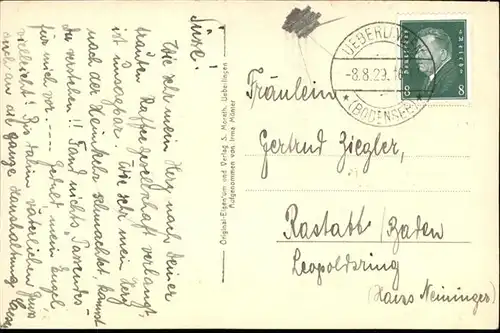 Süsse!
Wie sehr mein Herz nach Deiner
trauten Kaffeegesellschaft verlangt,
ist unsagbar. Wie sehr mein Herz
nach der Heimkehr schmachtet, kannst
du verstehen!! Fand nichts "Passendes"
für mich vor. — Geduld mein Engel,
vielleicht! Bis dahin väterlichen Gruss
auch an die ganze Haushaltung
Original-Eigentum und Verlag S. Morath, Ueberlingen
Aufgenommen von Irma Münter
UEBERLINGEN
-8.8.29.16
(BODENSEE)
Deutsches Reich
8 8
Fräulein
Gertrud Ziegler,
Rastatt/Baden
Leopoldsring
(Haus Neininger)